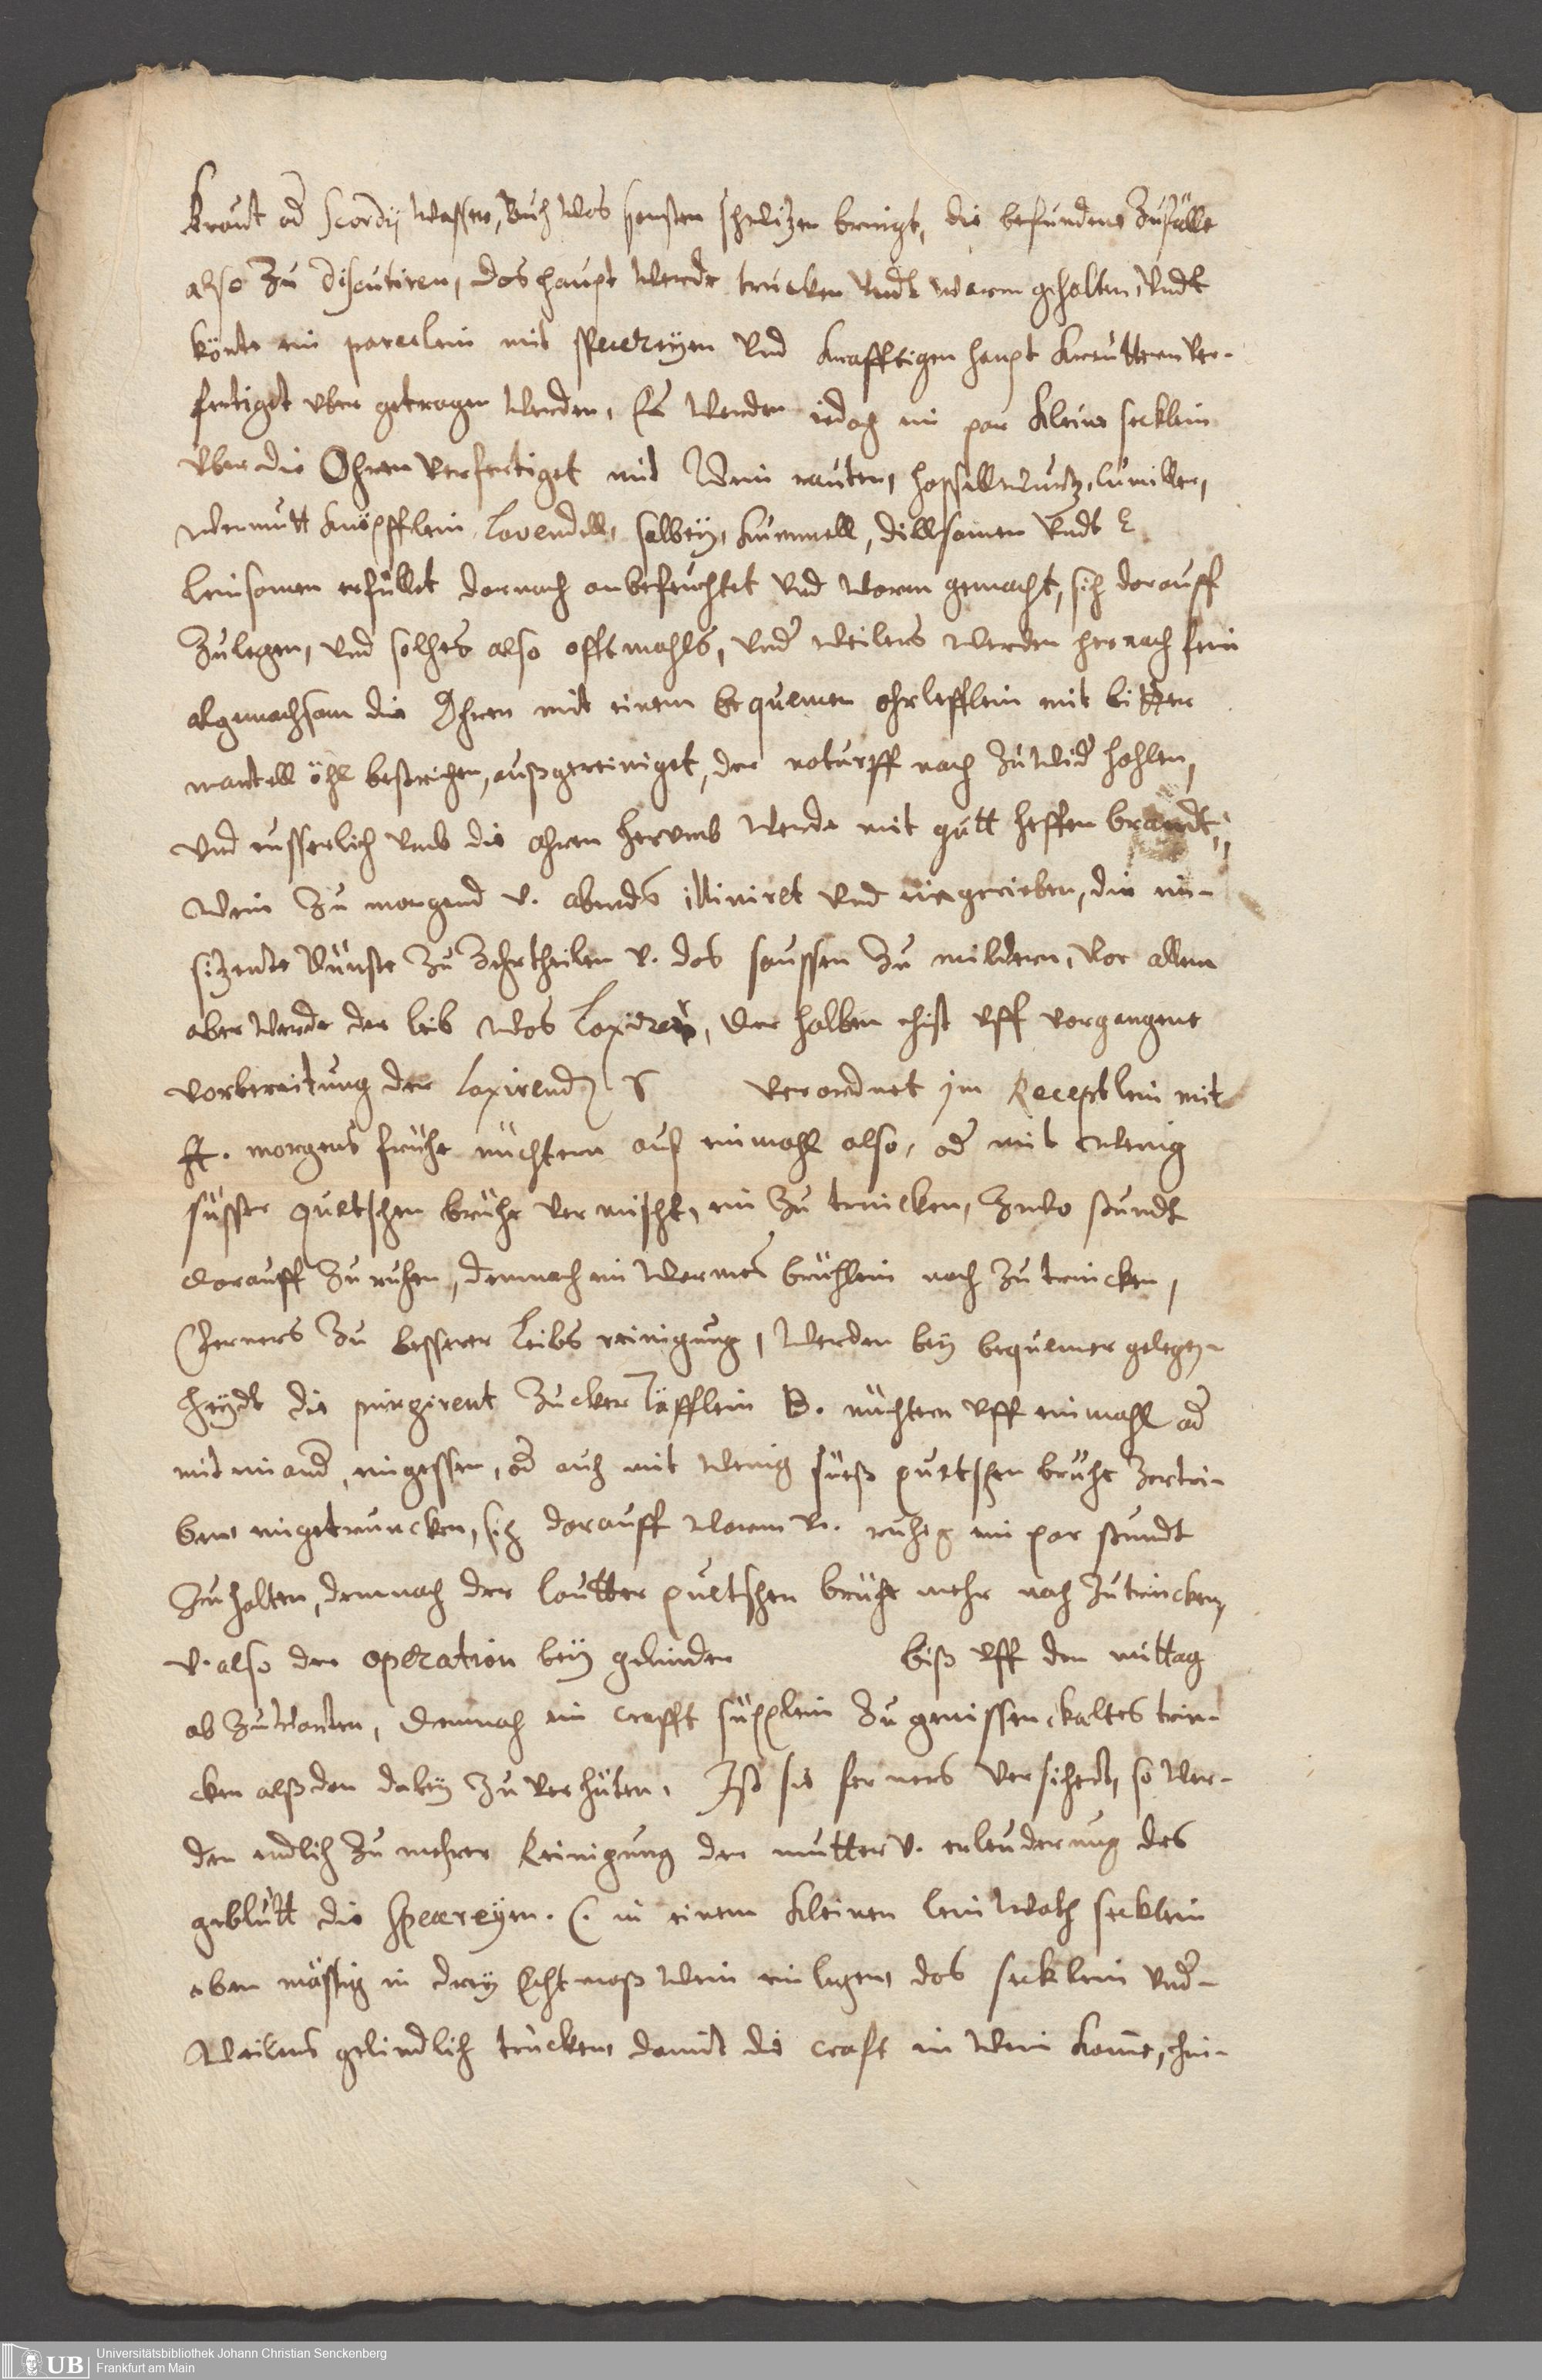 kraut od Scordij Wasser, Auch Was sonsten schwizen bringt, die befundene Zufälle
also zu discutiren, das haupt werde trucken Undt warm gehalten, Undt
könte ein pareclein mit specereyen Und krafftigen haupt kreutteren ver-
fertiget vber getragen werden, Es werden iedoch ein par kleine secklein
vber die Ohren verfertiget mit Wein rauten, hasselwurtz,
Wermutt knöpfflein, Lavendell, salbey, kümmell, dillsamen Undt
leinsamen erfüllet darnach anbefeuchtet Und warm gemacht, sich darauff
zulegen, Und solches also offtmahls, Under weilens werden hernach fein
algemachsam die Ohren mit einem bequemen ohrlefflein mit bitter
mandell öhl bestrichen, außgereiniget, der noturfft nach zu wider hohlen,
Und eusserlich Umb die ohren herumb werde mit gutt heffen brandt
Wein zu morgend v. abends illiniret Und eingerieben, die ein-
sizente dünste zu zehrtheilen v. das saussen zu mildern, Vor allem
aber werde der leib was laxiret, der halben ehist vff vorgangene
vorbereitung der laxirend verordnet im Receptlein mit
A. morgens frühe nüchtern auf einmahl also, od mit wenig
süsser quetschen brühe vermischt, ein zu trincken, Zwo stundt
darauff zu ruhen, demnach ein warmes brühlein nach zu trincken,
Ferners zu besserer leibs reinigung, werden bey bequemer gelegen-
heydt die purgirent Zucker Täfflein B. nüchtern vff einmahl od
mit einand eingessen, od auch mit wenig süeß quetschen brühe zertri-
ben eingetruncken, sich darauff warm v. ruhig ein par stundt
zu halten, demnach der lautter quetschen brühe mehr nach zutrincken,
v. also der operation bey gelinder biß vff den mittag
ab zu warten, demnach ein crafft süpplein zu genissen, kaltes trin-
cken alßdan dabey zu verhüten. Ist sie ferners versichert, so wer-
den endlich zu mehrer Reinigung der mutter v. erleuderung des
geblütt die specereyen. C. in einem kleinen leinwath secklein
eben mässig in drey Echtmaß Wein ein legen, das secklein under-
weilens gelindlich trucken, damit die craft in Wein komme, hin-
Universitätsbibliothek Johann Christian Senckenberg
Frankfurt am Main
UB